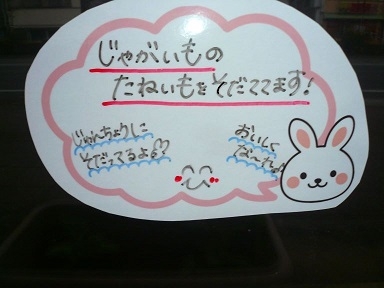 じゃがいもの
たねいもをそだててます!
じゅんちょうに
そだってるよ♪♡
おいしく
な〜れ♪